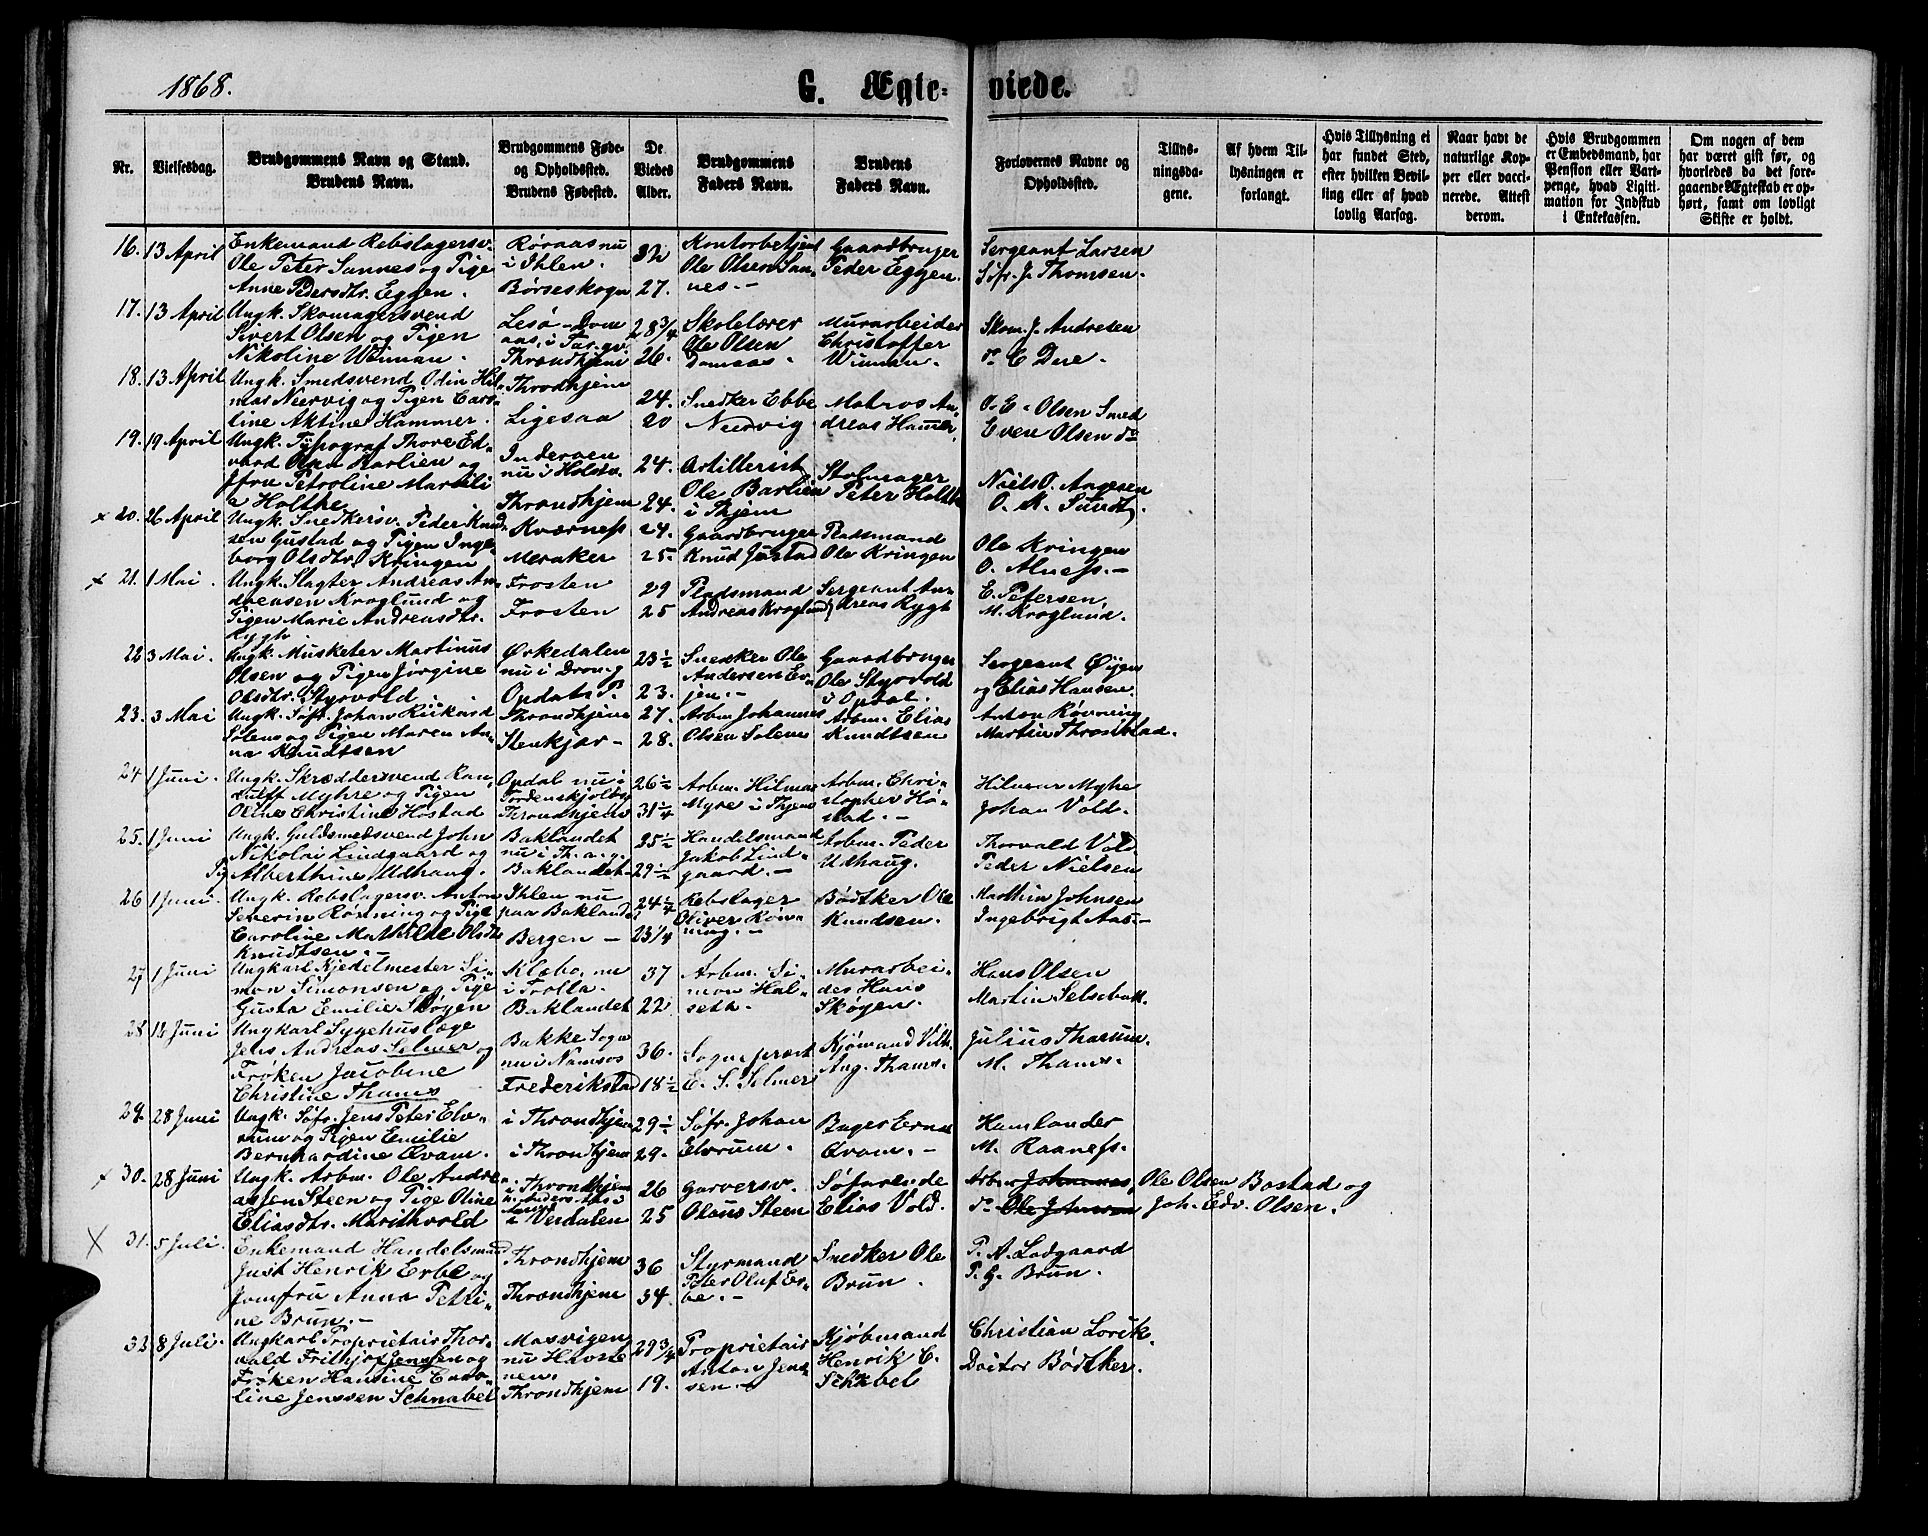 1868.
G. Ægte-
viede.
Nr.
Vielsesdag.
Brudgommens Navn og Stand.
Brudens Navn.
Brudgommens Føde-
og Opholdssted.
Brudens Fødested.
De
Viedes
Alder.
Brudgommens
Faders Navn.
Brudens
Faders Navn.
Forlovernes Navne og
Opholdssted.
Tillys-
ningsda-
gene.
Af hvem Til-
lysningen er
forlangt.
Hvis Tillysning ei
har fundet Sted,
efter hvilken Bevil-
ling eller af hvad
lovlig Aarsag.
Naar havt de
naturlige Kop-
per eller vacci-
nerede. Attest
derom.
Hvis Brudgommen
er Embedsmand, har
Pension eller Vart-
penge, hvad Ligiti-
mation for Indskud
i Enkekassen.
Om nogen af dem
har været gift før, og
hvorledes da det fore-
gaaende Ægteskab er op-
hørt, samt om lovligt
Skifte er holdt.
16. 13 April
Enkemand Rebslagersv.
Ole Peter Sannes og Pige
Anne Pedersdtr. Eggen.
Røraas nu
i Ihlen.
Børseskogn
32
27.
Kontorbetjent
Ole Olsen San
nes.-
Gaardbruger
Peder Eggen.
Sergeant Larsen
Søfr. J. Thomsen.
17. 13 April
Ungk. Skomagersvend
Sivert Olsen og Pigen
Nikoline Wiiman.
Lesø - Dom
Throndhjem
28 3/4
26.
Skolelærer
Ole Olsen
Domaas.
Murarbeider
Christoffer
Wiman.
Skom. J. Andresen
do C Due.
18. 13 April
Ungk. Smedsvend Odin Hil-
mar Neervig og Pigen Caro-
line Aktine Hammer.
Throdhjem
Ligesaa
24.
20
Snedker Ebbe
Neervig
Matros An-
dreas Hamer.
O. E. Olsen Smed
Even Olsen do
19. 19 April
Ungk. Typograf Thore Ed-
vard Olsen Barlien og
Jfru Petroline Mareli
a Holthe
Inderøen
nu i Holstv.
Throndhjem
24.
24.
Artillerist
Ole Barlien
i Thjem
Stolmager
Peter Holthe
Niels O. Angesen
O. M. Sundt.
x 20. 26 April
Ungk. Snedkersv. Peder Knud-
sen Gustad og Pigen Inge-
borg Olsdtr. Kringen
Kværness
Meraker
24.
25.
Gaardbruger
Knud Gustad
Pladsmand
Ole Kringen
Ole Kringen
O. Alness.-
x 21. 1 Mai.
Ungk. Slagter Andreas An-
dreasen Kroglund og
Pigen Marie Andreasdtr.
Rygh
Frosten
Frosten
29
25
Pladsmand
Andreas Kroglund
Sergeant An-
dreas Rygh
E. Petersen
M. Kroglund.
22 3 Mai.
Ungk. Musketer Martinus
Olsen og Pigen Jørgine
Olsdtr. Styrvold
Ørkedalen
nu i Dron.g
Opdals P.
23 1/2
23.
Snedker Ole
Andersen Ev-
jen.-
Gaardbruger
Ole Styrvold
i Opdal.
Sergeant Øyen
og Elias Hansen.
23. 3 Mai
Ungk. Søfr. Johan Rikard
Solem og Pigen Maren An-
na Knudtsen
Throndhjem
Stenkjær -
27.
28.
Arbm. Johannes
Olsen Solem
Arbm. Elias
Knudtsen
Anton Rønning
Martin Thronstad.
24 1 Juni.
Ungk. Skræddersvend Ran-
dulff Myhre og Pigen
Oline Christine Hostad
Opdal nu i
Tordenskjoldsg
Throndhjem
26 1/2
31 1/4
Arbm. Hilmar
Myre i Thjem
Arbm. Chri-
stopher Ho-
stad.-
Hilmar Myhre
Johan Vold.
25. 1 Juni
Ungk. Guldsmedsvend John
Nikolai Lindgaard og
Pig Alberthine Udhaug.
Baklandet
nu i Th. a. g.
Baklandet
25 1/2
29 1/2
Handelsmand
Jakob Lind-
gaard.-
Arbm. Peder
Udhaug.
Thorvald Vold
Peder Nielsen
26 1 Juni.
Ungk. Rebslagersv. Anton
Severin Rønning og Pige
Caroline Mathilde Olsdtr
Knudtsen.-
Ihlen nu
paa Baklandet
Bergen -
24 1/4
23 1/4
Rebslager
Oliver Røn-
ning.-
Bødtker Ole
Knudsen.
Marthin Johnsen
Ingebrigt Aas.-
27 1 Juni
Ungkarl Kjedelmester Si-
mon Simonsen og Pige
Gusta Emilie Skøgen
Klæbo, nu
i Trolla.
Baklandet
37
22.
Arbm. Si-
mon Hal-
seth.
Murarbei-
der Hans
Skøgen.
Hans Olsen
Martin Selsebak.
28 14 Juni
Ungkarl Sygehuslæge
Jens Andreas Selmer og
Frøken Jacobine
Christine Thams
Bakke Sogn
nu i Namsos
Frederikstad
36.
18 1/2
Sognepræst
E. S. Selmer
Kjømand Vilh.
Aug. Thams.
Julius Tharum.
M. Thams.
29. 28 Juni
Ungk. Søfr. Jens Peter Elv-
rum og Pigen Emilie
Bernhardine Qvam.
i Throndhjem
i Throndhjem
29 1/2
29.
Søfr. Johan
Elvrum.
Bager Ernst
Qvam.-
Hemlander
M. Raaness.
x 30. 28 Juni
Ungk. Arbm. Ole Andre-
assen Steen og Pige Oline
Eliasdtr. Marithvold
i Throndhjem
i Verdalen
26
25
Garversv.
Olaus Steen
Søfarende
Elias Vold.
Arbm Johannes, Ole Olsen Bostad og
do Ole Johnsen Joh. Edv. Olsen.
x 31. 5 Juli.
Enkemand Handelsmand
Just Henrik Erbe og
Jomfru Anna Petri-
ne Brun.-
Throndhjem
Throndhjem
36
34.
Styrmand
Peter Oluf Er-
be.-
Snedker Ole
Brun.
P. A. Ladgaard
P. G. Brun.
32 8 Juli.
Ungkarl Proprietair Thor-
vald Frithjof Jenssen og
Frøken Hansine Caro-
line Jenssen Schnabel
Masvigen
nu Havste
nen.
Throndhjem
29 3/4
19.
Proprietair
Anton Jens-
sen.-
Kjøbmand
Henrik C.
Schabel
Christian Lorik.
Doctor Bødtker.